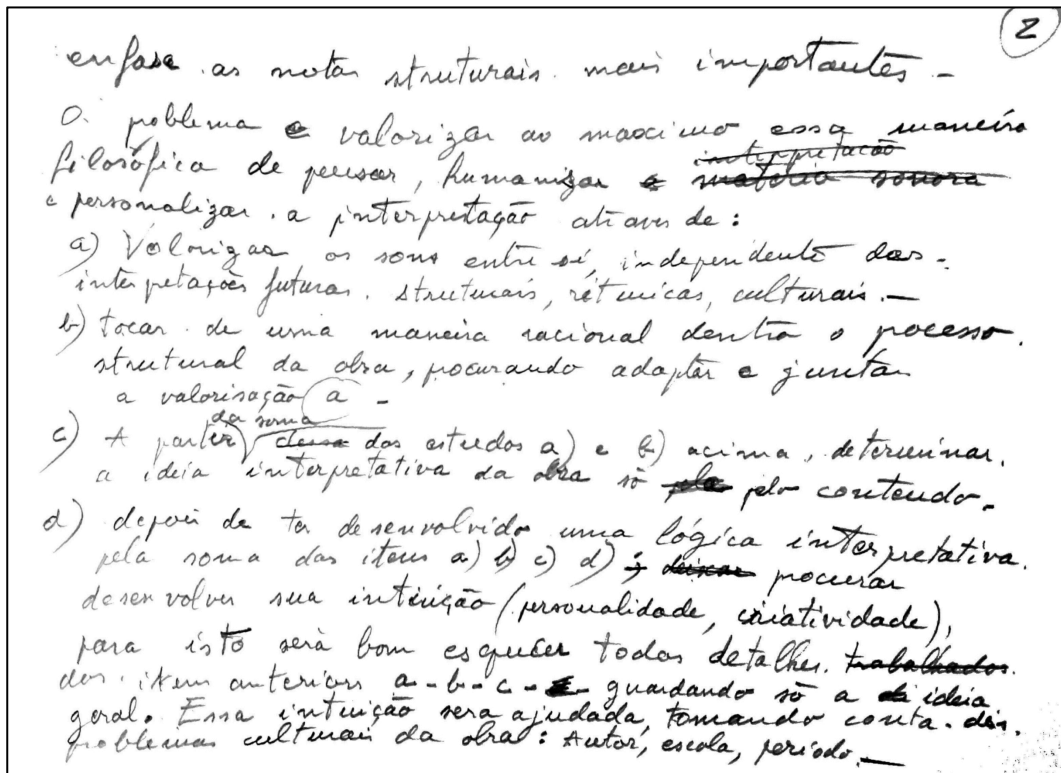 2
enfase as notas struturais mais importantes -
O problema e valorizar ao maximo essa maneira
filosófica de pensar, humanizar e interpretação matéria sonora
e personalizar a interpretação atraves de :
a) Valorizar os sons entre sí, independente das -
interpetações futuras. struturais, rítmicas, culturais. —
b) tocar de uma maneira racional dentro o pocesso.
strutural da obra, pocurando adaptar e juntar
a valorisação a -
da soma
c) A partir dessa dos estudos a) e b) acima, determinar,
a ideia interpretativa da obra só pela pelo conteudo.
d) depois de ter desenvolvido uma lógica interpretativa.
pela soma das itens a) b) c) d) ; deixar pocurar
desenvolver sua intuição (personalidade, criatividade),
para isto será bom esquecer todos detalhes. trabalhados.
dos. item anteriors a - b - c - guardando só a ideia
geral. Essa intuição sera ajudada, tomando conta. dos.
problemas culturais da obra : Autor, escola, período. —